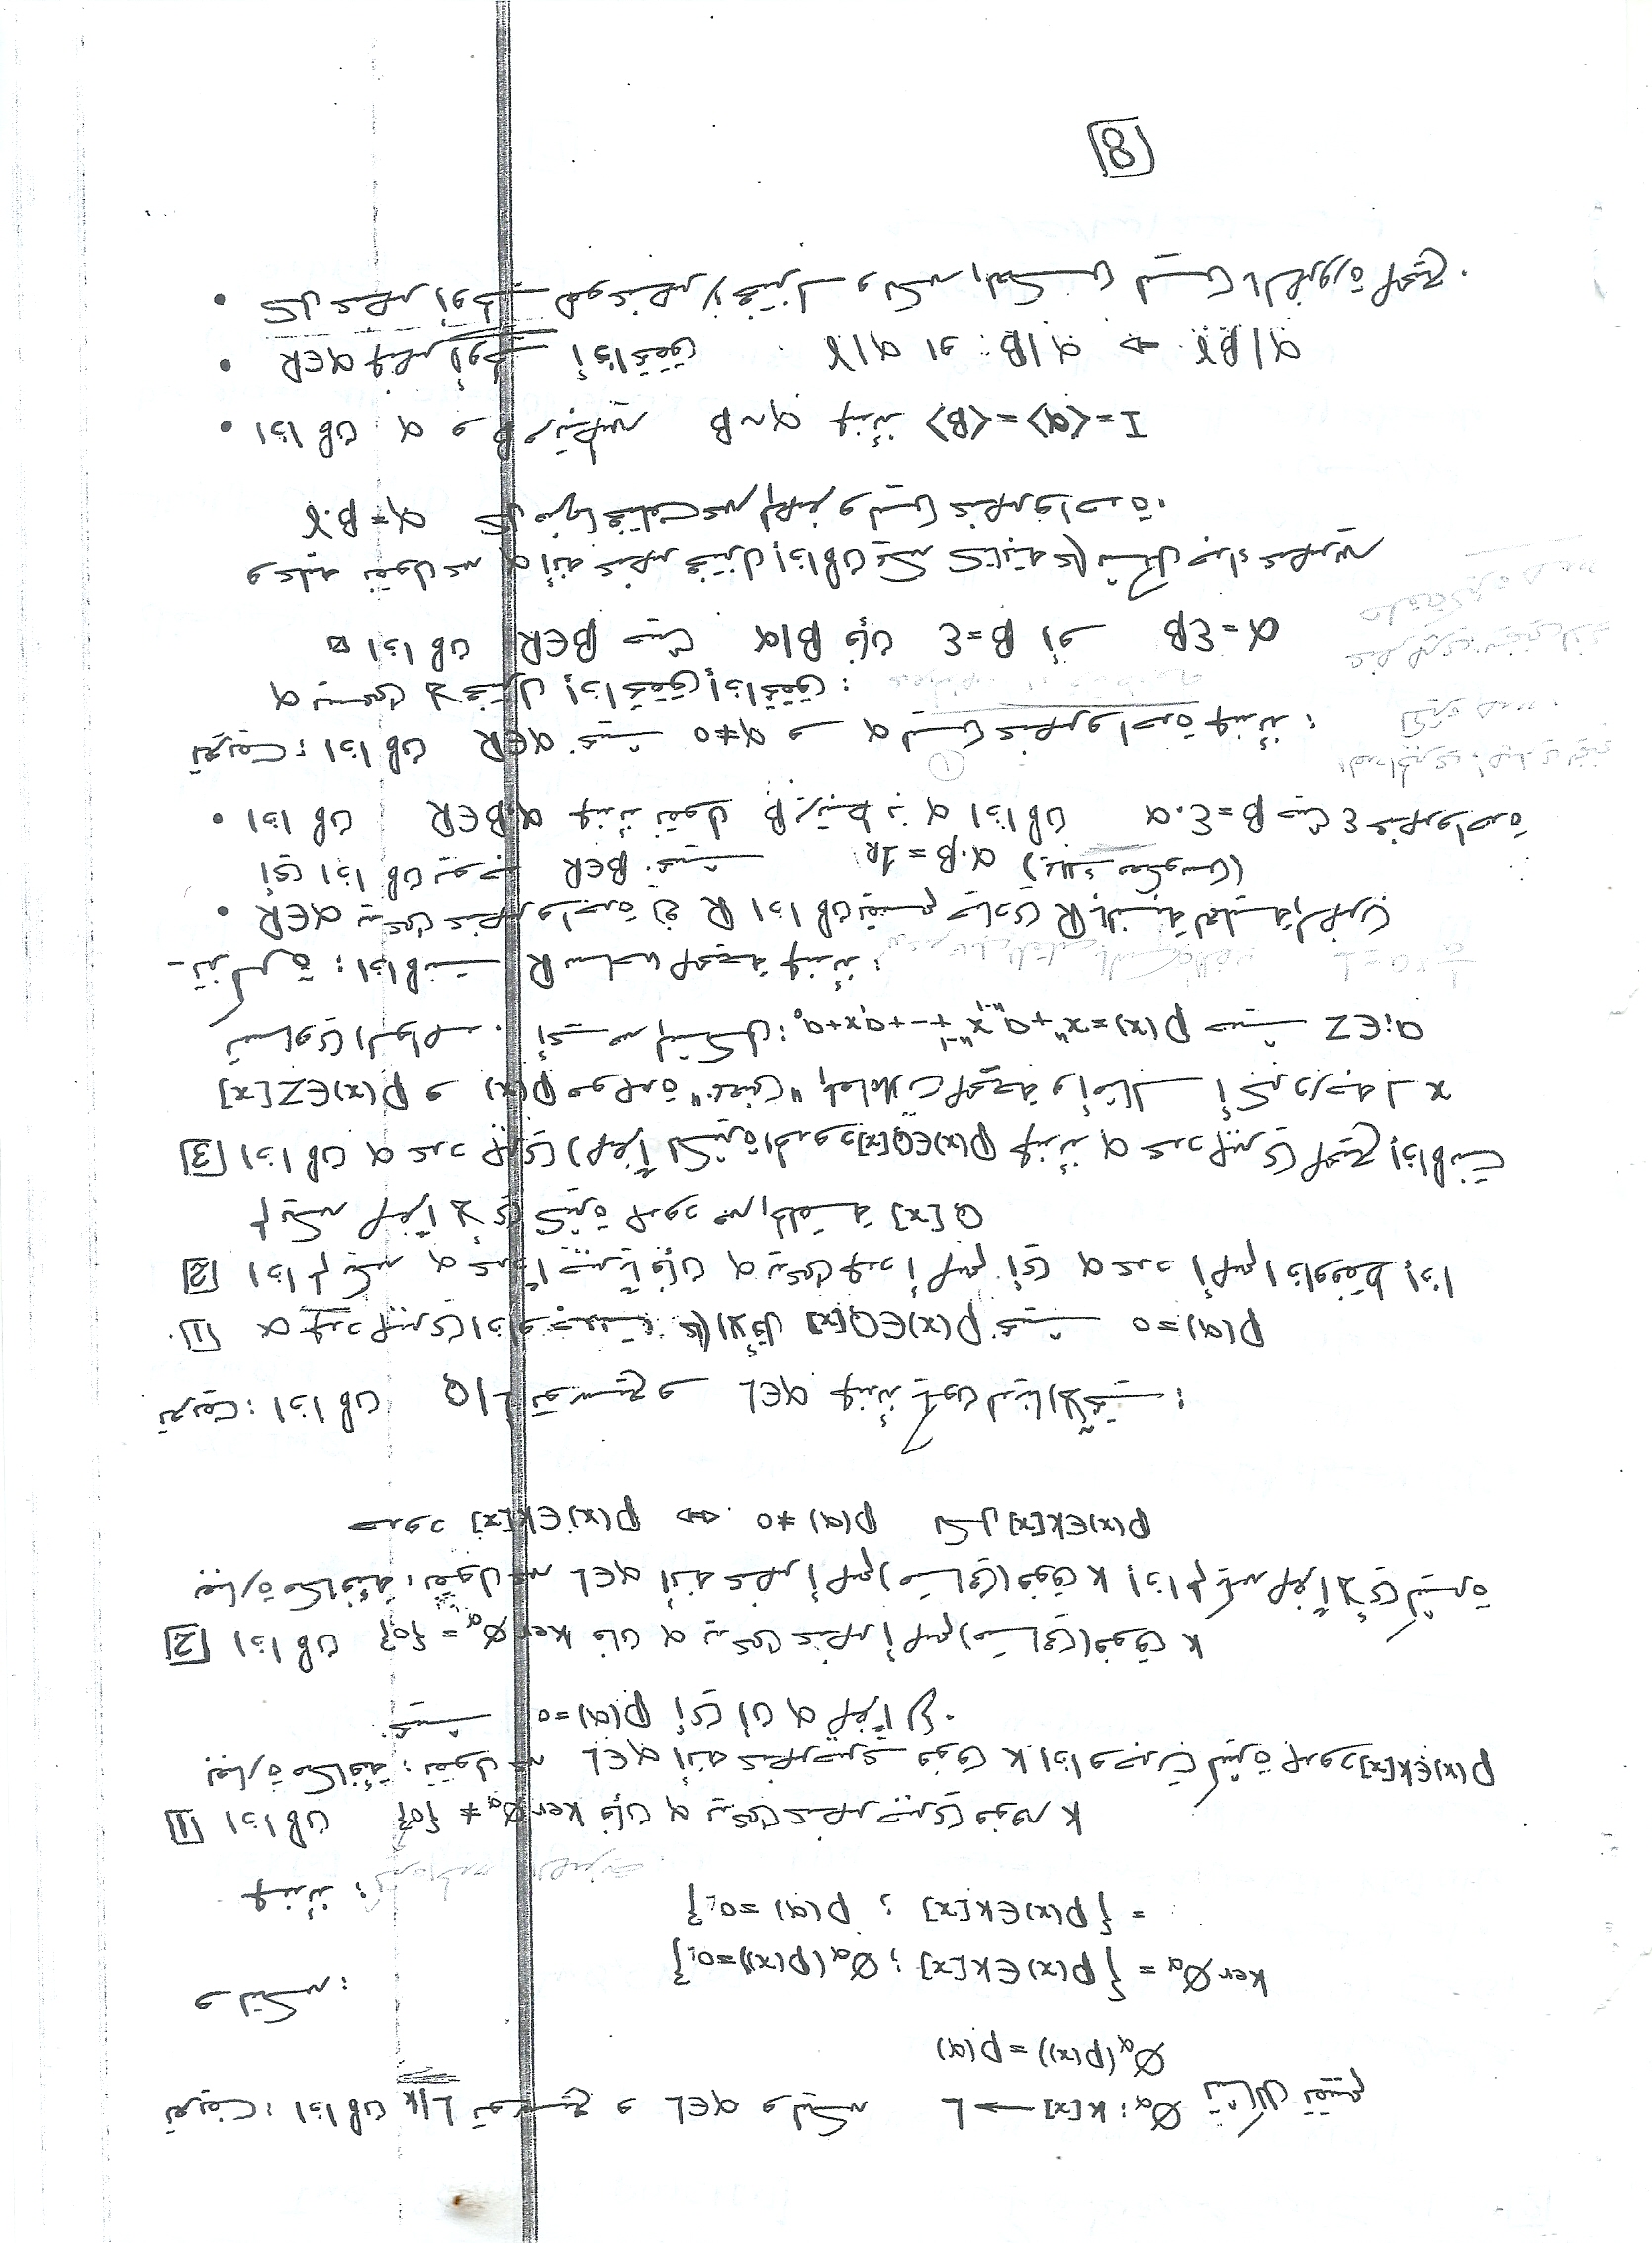 تعريف: اذا كان L/k توسيع و α∈L وليكن Øα: k[x] → L تشاكل تقييم
Øα(p(x)) = p(α)
ولتكن:
ker Øα = {p(x)∈k[x] ; Øα(p(x))=0L}
= {p(x)∈k[x] ; p(α)=0L}
عندئذ:
كثيرة الحدود الصفرية
[1] اذا كان ker Øα ≠ {0} فإن α يدعى عنصر جبري فوق k
بعبارة مكافئة: نقول عن α∈L أنه عنصر جبري فوق k اذا وجدت كثيرة حدود p(x)∈k[x]
بحيث p(α)=0 أي أن α صفراً لها.
[2] اذا كان ker Øα = {0} فان α يدعى عنصر أصم (متسامي) فوق k
بعبارة مكافئة: نقول عن α∈L أنه عنصر أصم (متسامي) فوق k إذا لم يكن صفراً لأي كثيرة
حدود p(x)∈k[x] ⇔ p(α)≠0 لكل p(x)∈k[x]
تعريف: اذا كان L/Q توسيع و α∈L عندئذ يكون لدينا الآتي:
[1] α عدد جبري اذا وجدت على الأقل p(x)∈Q[x] بحيث p(α)=0
[2] اذا لم يكن α عدداً جبرياً فإن α يدعى عدد أصم أي α عدد أصم اذا وفقط إذا
لم يكن صفراً لأي كثيرة حدود من الحلقة Q[x]
[3] اذا كان α عدد جبري (صفراً لكثيرة الحدود p(x)∈Q[x] عندئذ α عدد جبري صحيح إذا كانت
p(x)∈Z[x] و p(x) موحدة "بمعنى" المعاملات صحيحة وأمثال أكبر درجه لـ x
تساوي الواحد. أي من الشكل: p(x)=xⁿ+aₙ₋₁xⁿ⁻¹+--+a₁x+a₀ حيث aᵢ∈Z
- تذكرة: اذا كانت R ساحه صحيحة عندئذ:
• α∈R يدعى عنصر واحدة في R اذا كان يقسم حيادي R بالنسبة لعملية الضرب
أي اذا كان يوجد β∈R بحيث α.β=1R (يملك معكوس)
• اذا كان α,β∈R عندئذ نقول β يرتبط بـ α اذا كان β=ε.α حيث ε عنصر واحدة
تعريف: اذا كان α∈R بحيث α≠0 و α ليس عنصر واحدة عندئذ:
α يسمى لا مختزل إذا تحقق إذا تحقق:
اذا كان β∈R حيث β|α فإن β=ε أو α=εβ
وعليه نقول عن α أنه عنصر مختزل إذا كان يمكن كتابته على شكل جداء عنصرين
α=β.γ كل منهما مختلف عن الصفر وليس عنصر واحدة.
• اذا كان α و β مرتبطين α~β عندئذ I=<α>=<β>
• α∈R عنصر أولي أذا تحقق α/βγ ⇒ α/β او α/γ
• كل عنصر أولي هو عنصر لا مختزل ولكن العكس ليس بالضرورة صحيح.
[8]